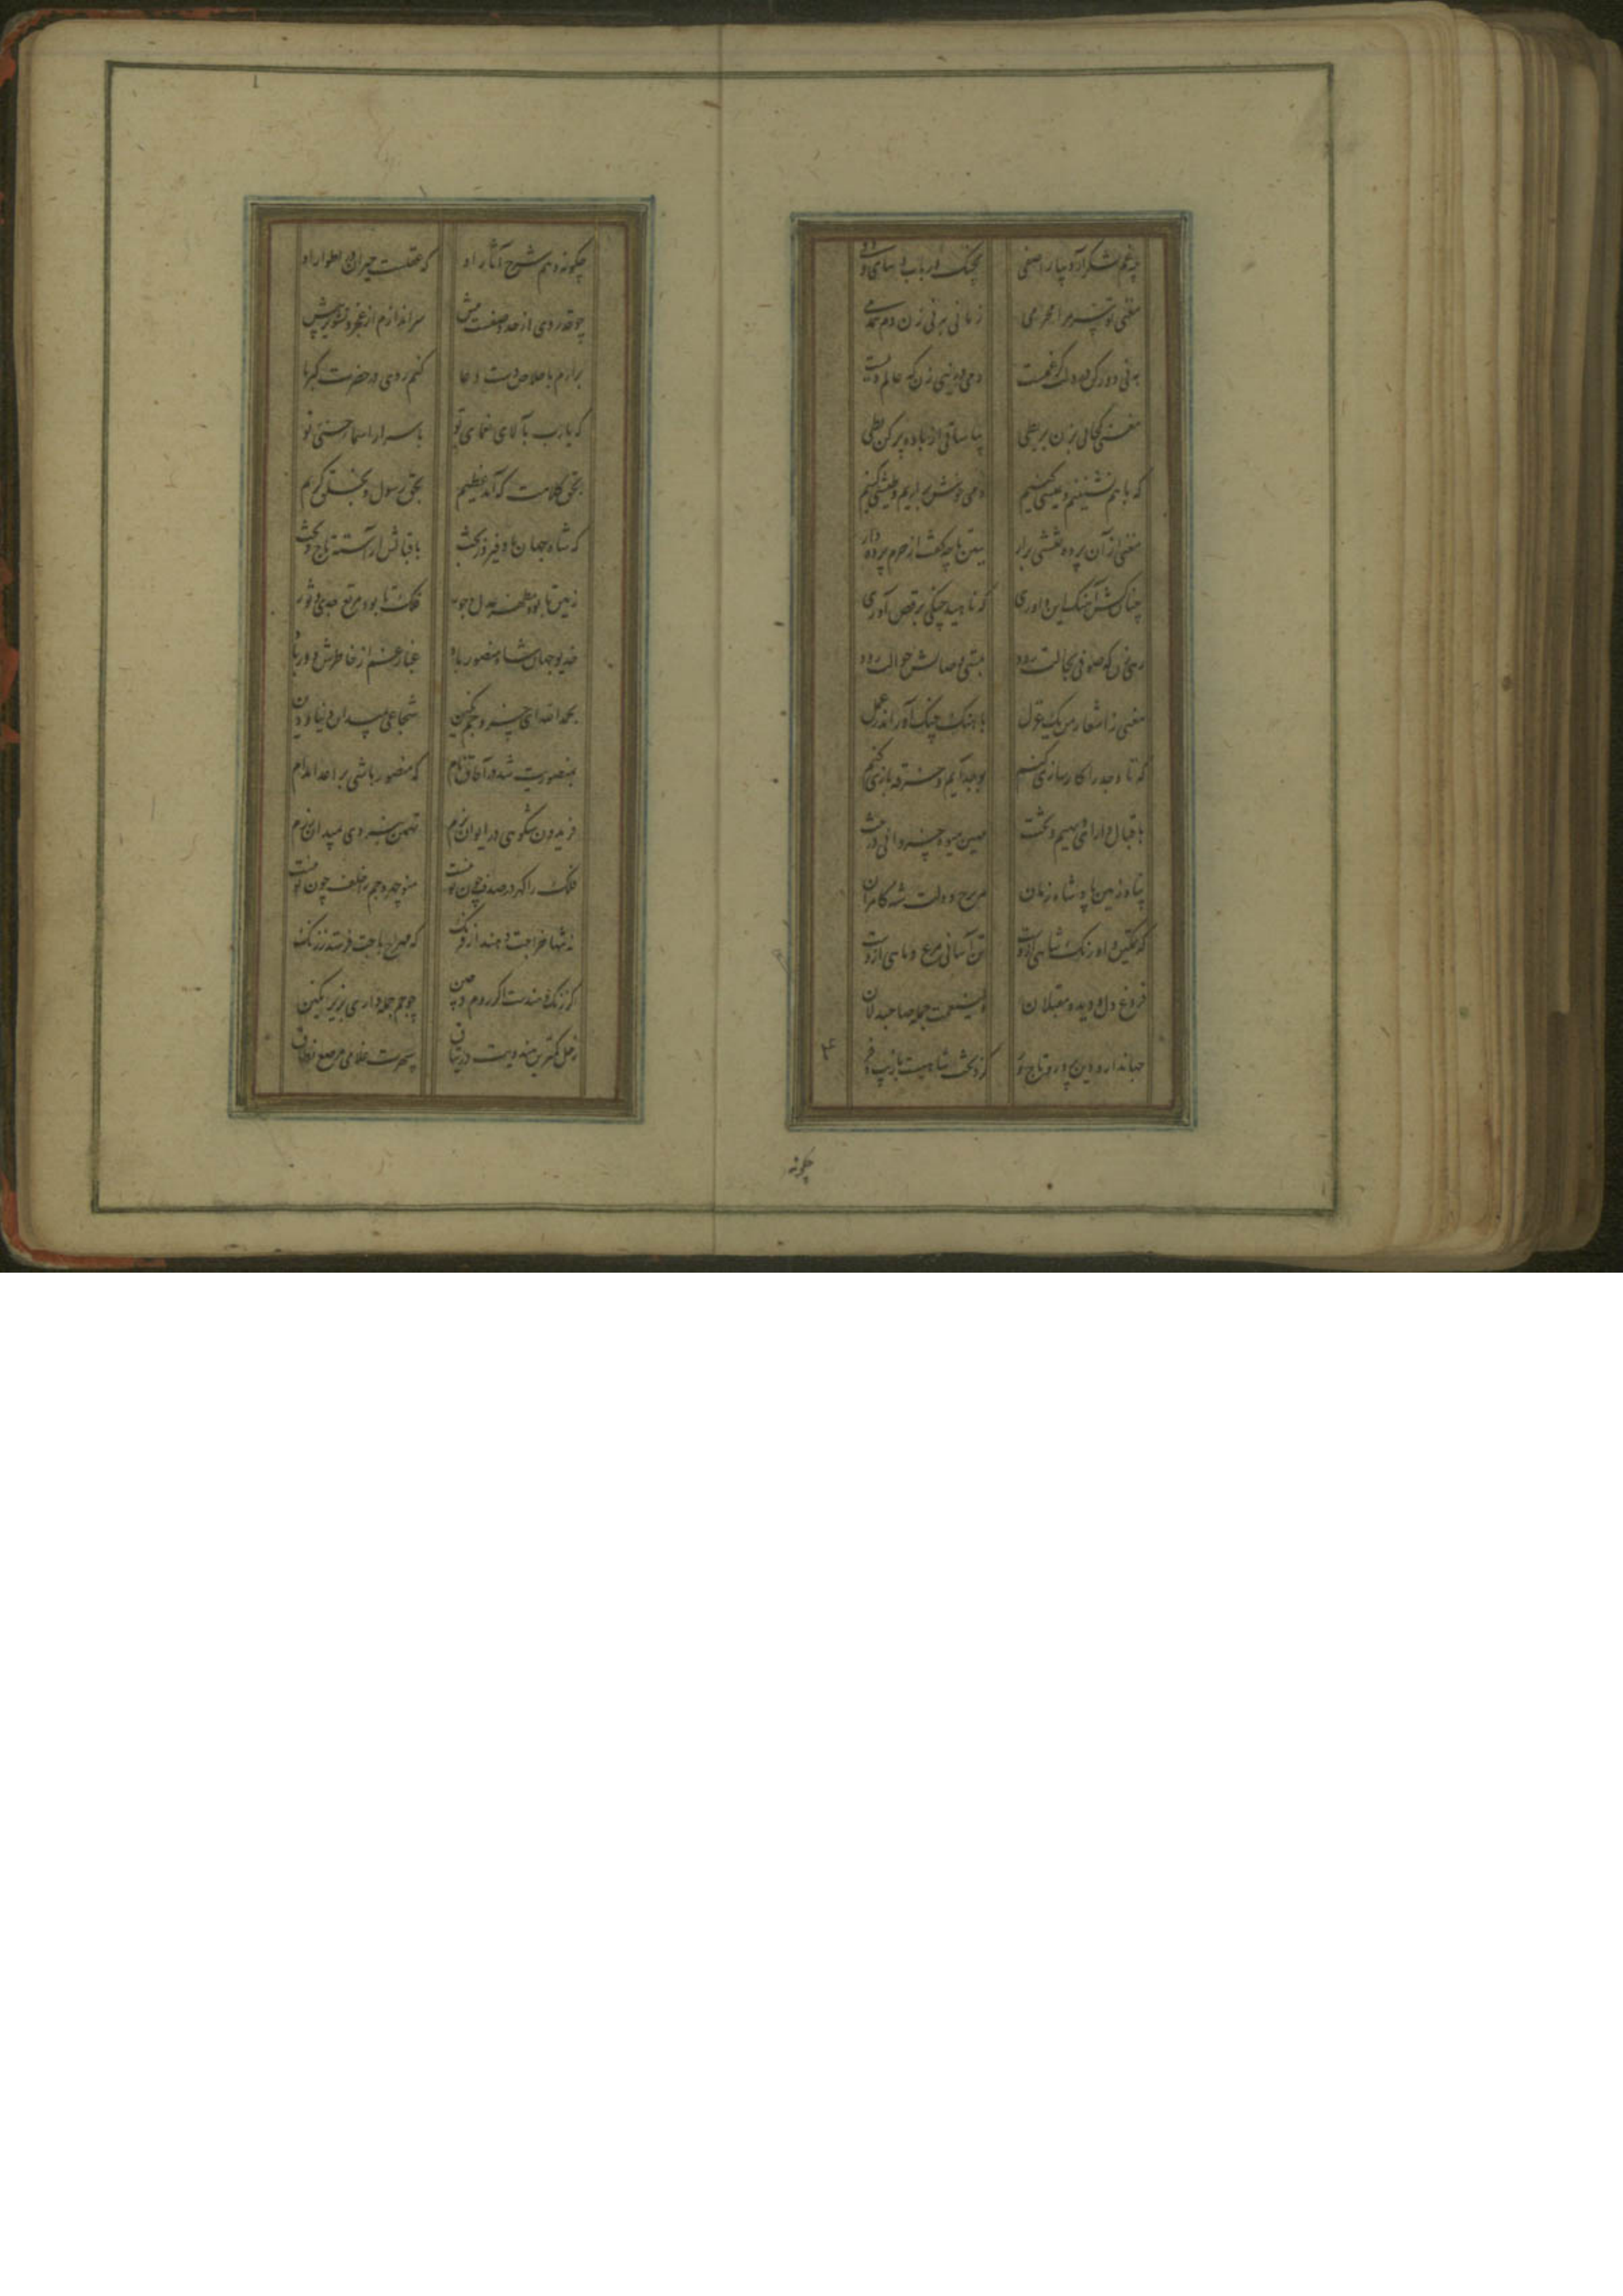 چو غم لشکر آرد بیارا صفی بچنگ و رباب و بنای و دفی
مغنی تو سر مرا محرمی زمانی به نی زن دم همدمی
به نی دور کن از دلت گر غمست دمی در نی زن که عالم دمست
مغنی کجائی بزن بربطی بیا ساقی از باده پر کن بطی
که با هم نشینیم و عیشی کنیم دمی خوش بر آریم و طیشی کنیم
مغنی از آن پرده نقشی برار ببین تا چه گفت از حرم پرده دار
چنان برکش آهنگ این داوری که ناهید چنگی برقص آوری
رهی زن که صوفی بحالت رود بمستی وصالش حوالت رود
مغنی ز اشعار من یک غزل بآهنگ چنگ آور اندر عمل
که تا وجد را کارسازی کنیم بوجد آیم و خرقه بازی کنیم
باقبال دارای دیهیم و تخت بهین میوه خسروانی درخت
پناه زمین پادشاه زمان مه برج دولت شه کامران
که تمکین اورنگ شاهی ازوست تن آسانی مرغ و ماهی ازوست
فروغ دل و دیده مقبلان ولی نعمت جمله صاحبدلان
جهاندار و دین پرور و تاجور کزو تخت شاهیست با زیب و فر
۴
چگونه
چگونه دهم شرح آثار او که عقلست حیران در اطوار او
چو قدر وی از حد وصفست بیش سراندازم از عجز و تشویر پیش
برآرم باخلاص دست دعا کنم روی در حضرت کبریا
که یارب بآلای نعمای تو باسرار اسماء حسنی تو
بحق کلامت که آمد عظیم بحق رسول و بخلق کریم
که شاه جهان باد فیروز بخت باقبالش آراسته تاج و تخت
زمین تا بود مظهر عدل و جور فلک تا بود مرتع جدی و ثور
خدیو جهان شاه منصور باد غبار غم از خاطرش دور باد
بحمد الله ای خسرو جم نگین شجاعی بمیدان دنیا و دین
بمنصوریت شد در آفاق نام که منصور باشی بر اعدا مدام
فریدون شکوهی در ایوان بزم تهمتن نبردی بمیدان رزم
فلک را گهر در صدف چون تو نیست منوچهر و جم را خلف چون تو نیست
نه تنها خراجت دهند از فرنگ که مهراج باجت فرستد ز زنگ
گر زنگ و هندست اگر روم و چین چو جم جمله داری بزیر نگین
زحل کمترین هندویت در وثاق سپهرت غلامی مرصع نطاق